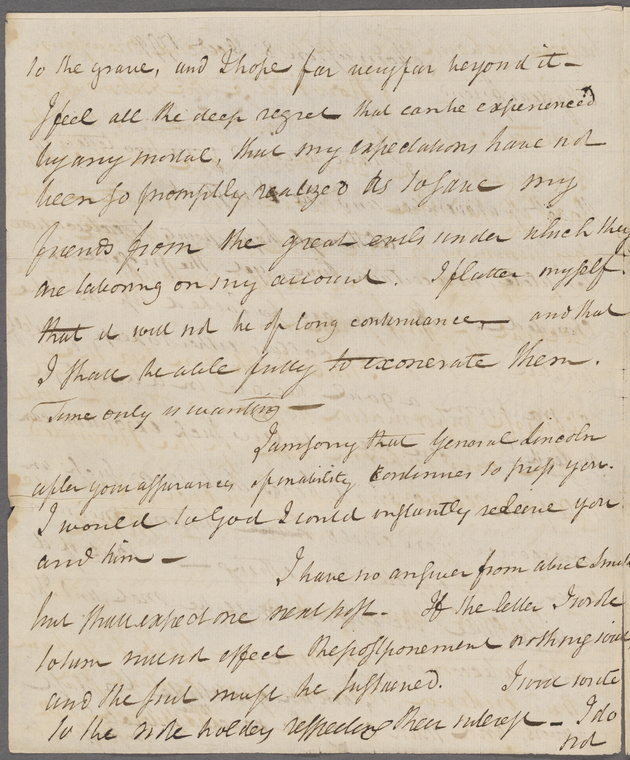 to the grave, and I hope far very far beyond it –
I feel all the deep regret that can be experienced
by any mortal, that my expectations have not
been so promptly realized as to save my
friends from the great evils under which they
are laboring on my account. I flatter myself
that it will not be of long continuance, – and that
I shall be able fully to exonerate them.
Time only is wanting –
I am sorry that General Lincoln
after your assurances of inability continues to press you.
I would to God I could instantly relieve you
and him –
I have no answer from
but shall expect one next post. If the letter I wrote
to him will not effect the postponement nothing will
and the suit must be sustained. I will write
to the note holders respecting their interest – I do
not